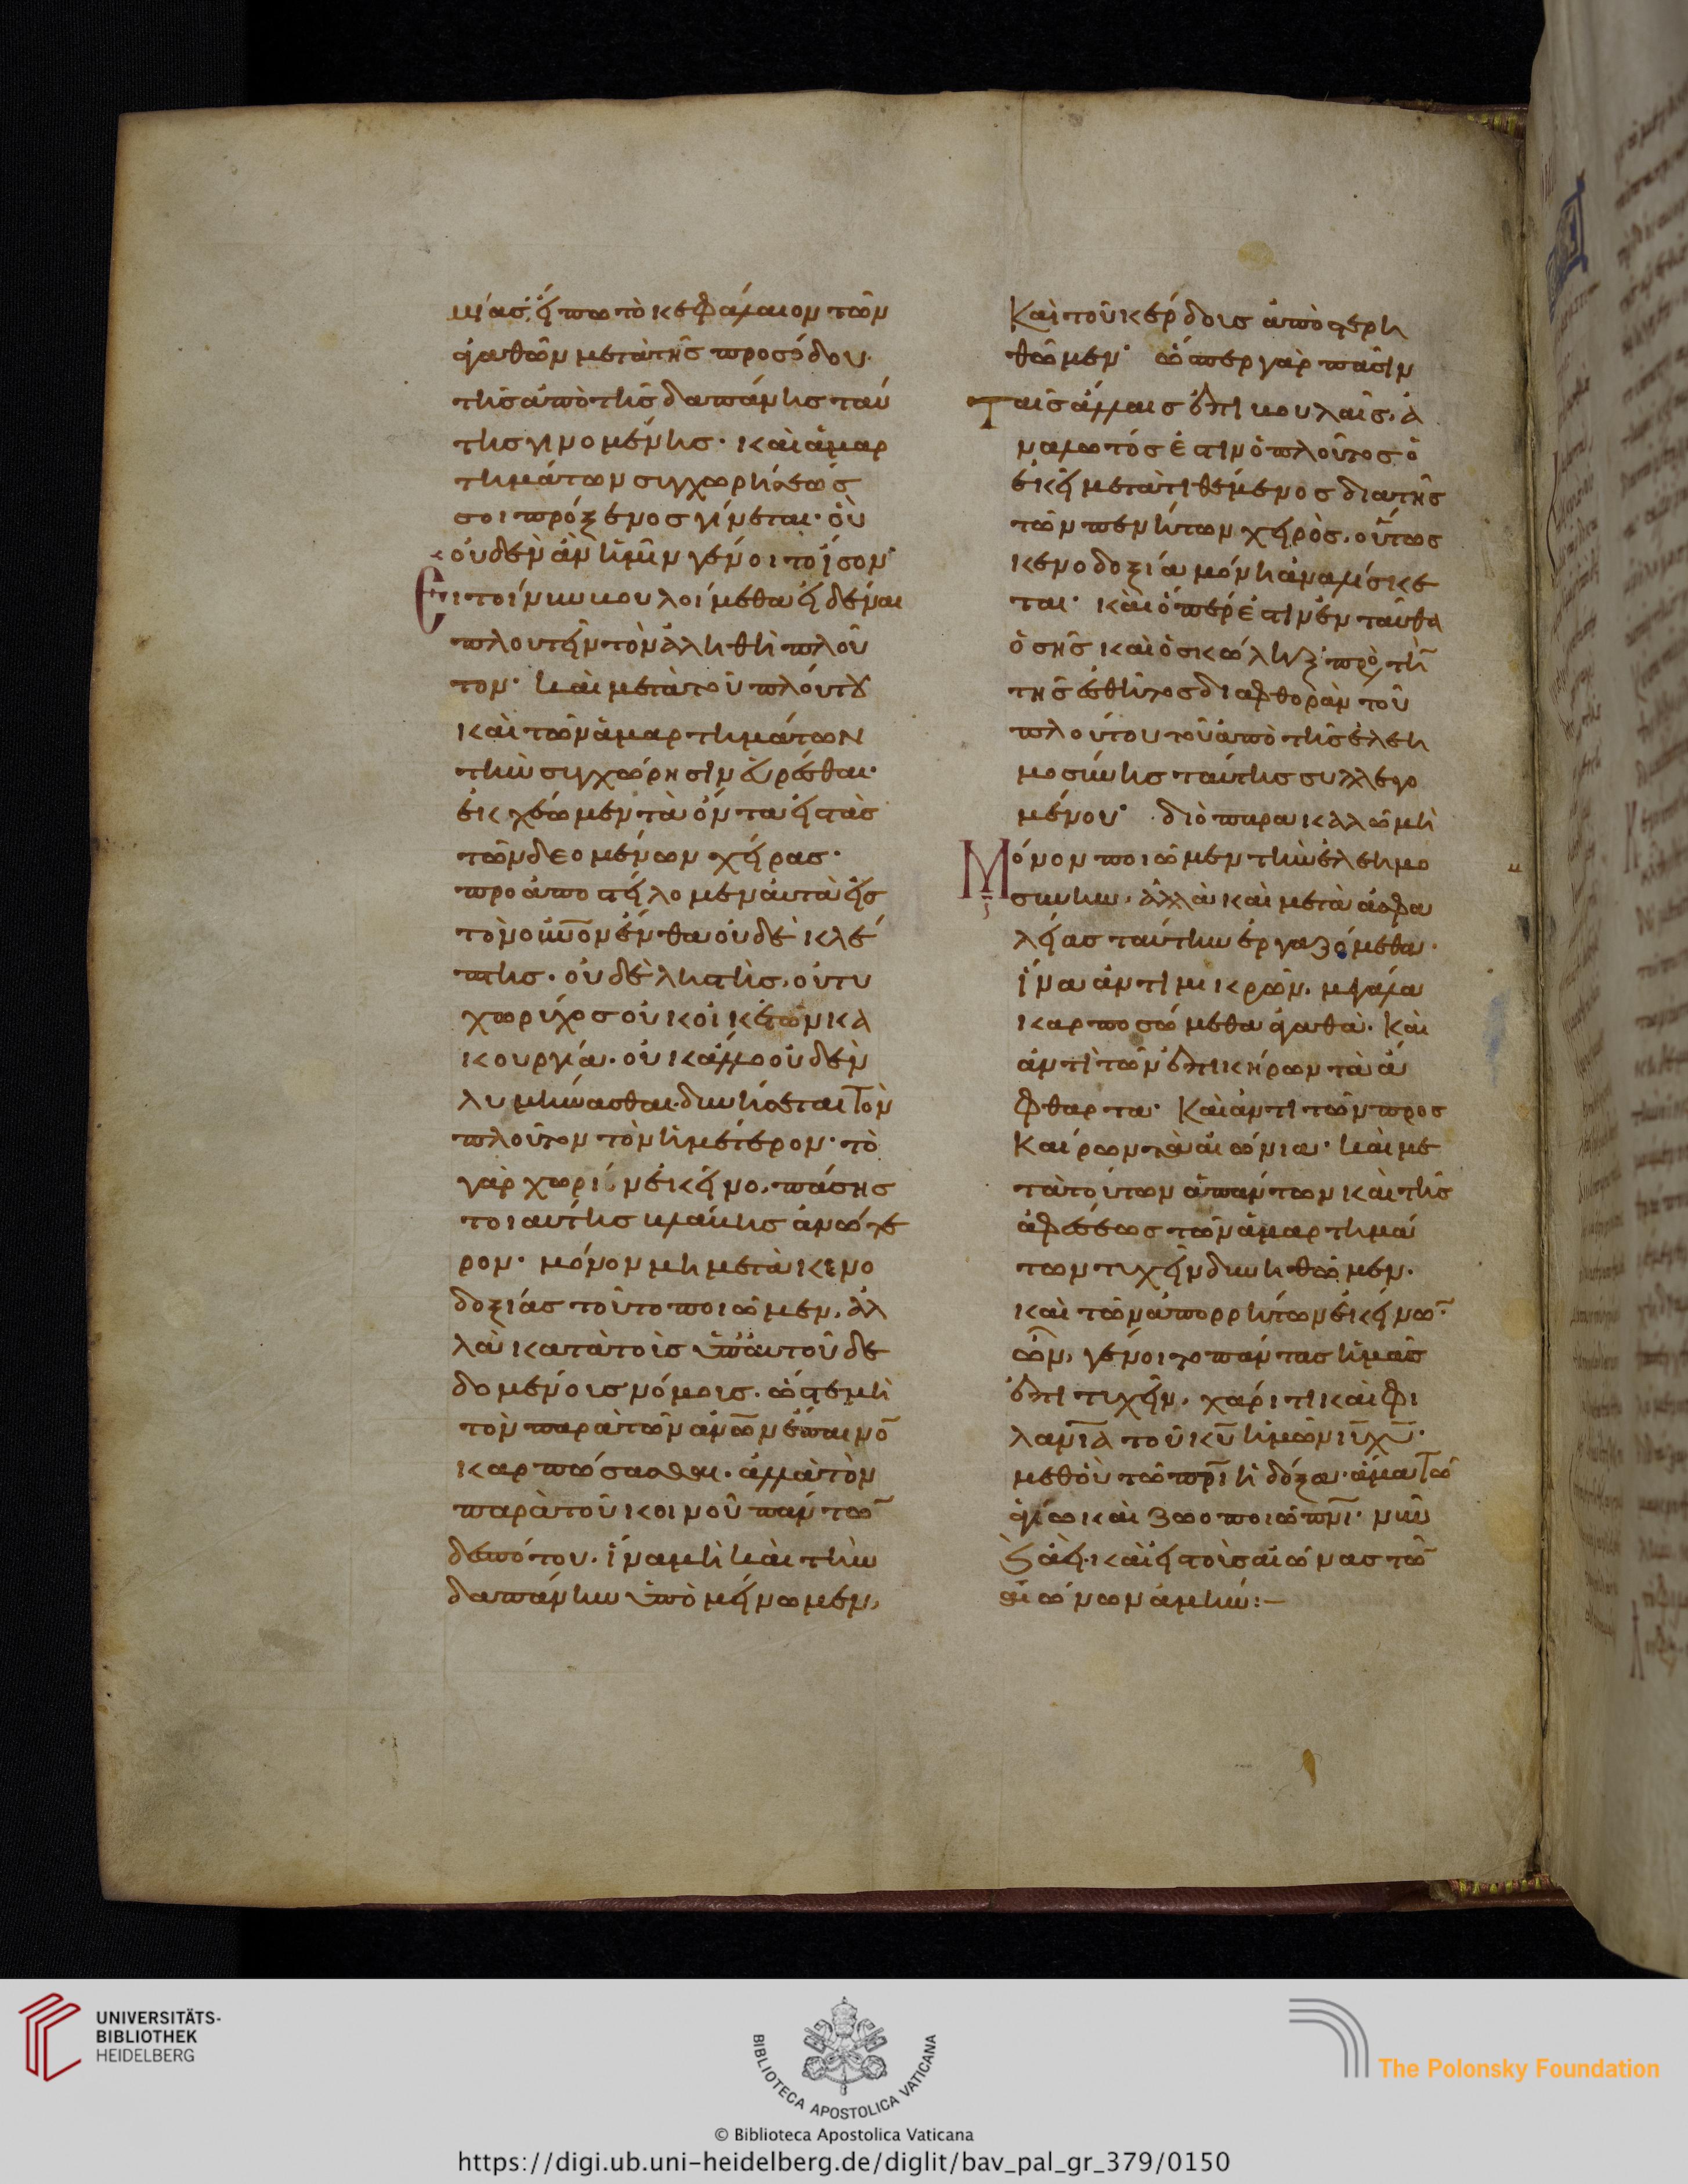 μίας, εἴπω τὸ κεφάλαιον τῶν
ἀγαθῶν μετὰ τῆς προσόδου
τῆς ἀπὸ τῆς δαπάνης ταύ
της γινομένης· καὶ ἁμαρ
τημάτων συγχωρήσεώς
σοι πρόξενος γίνεται· οὗ
οὐδὲν ἂν ἡμῖν γένοιτο ἴσον·
Εἰ τοίνυν βουλοίμεθα εἰδέναι
πλουτεῖν τὸν ἀληθῆ πλοῦ
τον· καὶ μετὰ τοῦ πλούτου
καὶ τῶν ἁμαρτημάτων
τὴν συγχώρησιν εὑρέσθαι·
ἐκχέωμεν τὰ ὄντα εἰς τὰς
τῶν δεομένων χεῖρας·
προαποστείλομεν αὐτὰ εἰς
τὸν οὐνὸν ἔνθα οὐδὲ κλέ
πτης· οὐδὲ ληστὴς, οὐ τυ
χωρύχος οὐκ οἰκετῶν κα
κουργία· οὐκ ἄλλο οὐδὲν
λυμήνασθαι δυνήσεται τὸν
πλοῦτον τὸν ἡμέτερον· τὸ
γὰρ χωρίον ἐκεῖνο, πάσης
τοιαύτης βλάβης ἀνώτε
ρον· μόνον μὴ μετὰ κενο
δοξίας τοῦτο ποιῶμεν, ἀλ
λὰ κατὰ τοὶς ὑπ αὐτοῦ δε
δομένοις νόμοις· ὥστε μὴ
τὸν παρὰ τῶν ἀνῶν ἔπαινο
καρπώσασθαι· ἀλλὰ τὸν
παρὰ τοῦ κοινοῦ πάντω
δεσπότου. ἵνα μὴ καὶ τὴν
δαπάνην ὑπομείνωμεν,
Καὶ τοῦ κέρδοις ἀποστερη
θῶμεν· ὥσπερ γὰρ πᾶσιν
ταῖς ἄλλαις ἐπιβουλαῖς, ἀ
ναλωτός ἐστιν ὁ πλοῦτος ὁ
ἐκεῖ μετατιθέμενος διὰ τῆς
τῶν πενήτων χειρὸς, οὕτως
κενοδοξία μόνη ἀναλίσκε
ται· καὶ ὅπερ ἐστὶν ἐνταῦθα
ὁ σὴς καὶ ὁ σκώληξ πρὸς τὴν
τῆς ἐσθῆτος διαφθορὰν τοῦ
πλούτου τοῦ ἀπὸ τῆς ἐλεη
μοσύνης ταύτης συλλεγο
μένου· διὸ παρακαλῶ μὴ
Μόνον ποιῶμεν τὴν ἐλεημο
σύνην, ἀλλὰ καὶ μετὰ ἀσφα
λείας ταύτην ἐργαζόμεθα·
ἵνα ἀντὶ μικρῶν, μεγάλα
καρποσώμεθα ἀγαθὰ. Καὶ
ἀντὶ τῶν ἐπικήρων τὰ ἄ
φθαρτα· Καὶ ἀντὶ τῶν προς
Καίρων τὰ αἰώνια· καὶ με
τὰ τούτων ἁπάντων καὶ τῆς
ἀφέσεως τῶν ἁμαρτημά
των τυχεῖν δυνηθῶμεν.
καὶ τῶν ἀπορρήτων ἐκείνω
ὧν, γένοιτο πάντας ἡμᾶς
ἐπιτυχεῖν, χάριτι καὶ φι
λανια τοῦ κυ ἡμῶν ιυ χυ·
μεθοὗ τῶ πρι ἡ δόξα· ἅμα τῶ
ἁγίω καὶ ζωοποιῶ πνι· νῦν
καὶ ἀεὶ· καὶ εἰς τοὶς αἰῶνας τῶ
αἰώνων ἀμήν:—
UNIVERSITÄTS-
BIBLIOTHEK
HEIDELBERG
BIBLIOTECA APOSTOLICA VATICANA
The Polonsky Foundation
© Biblioteca Apostolica Vaticana
https://digi.ub.uni-heidelberg.de/diglit/bav_pal_gr_379/0150